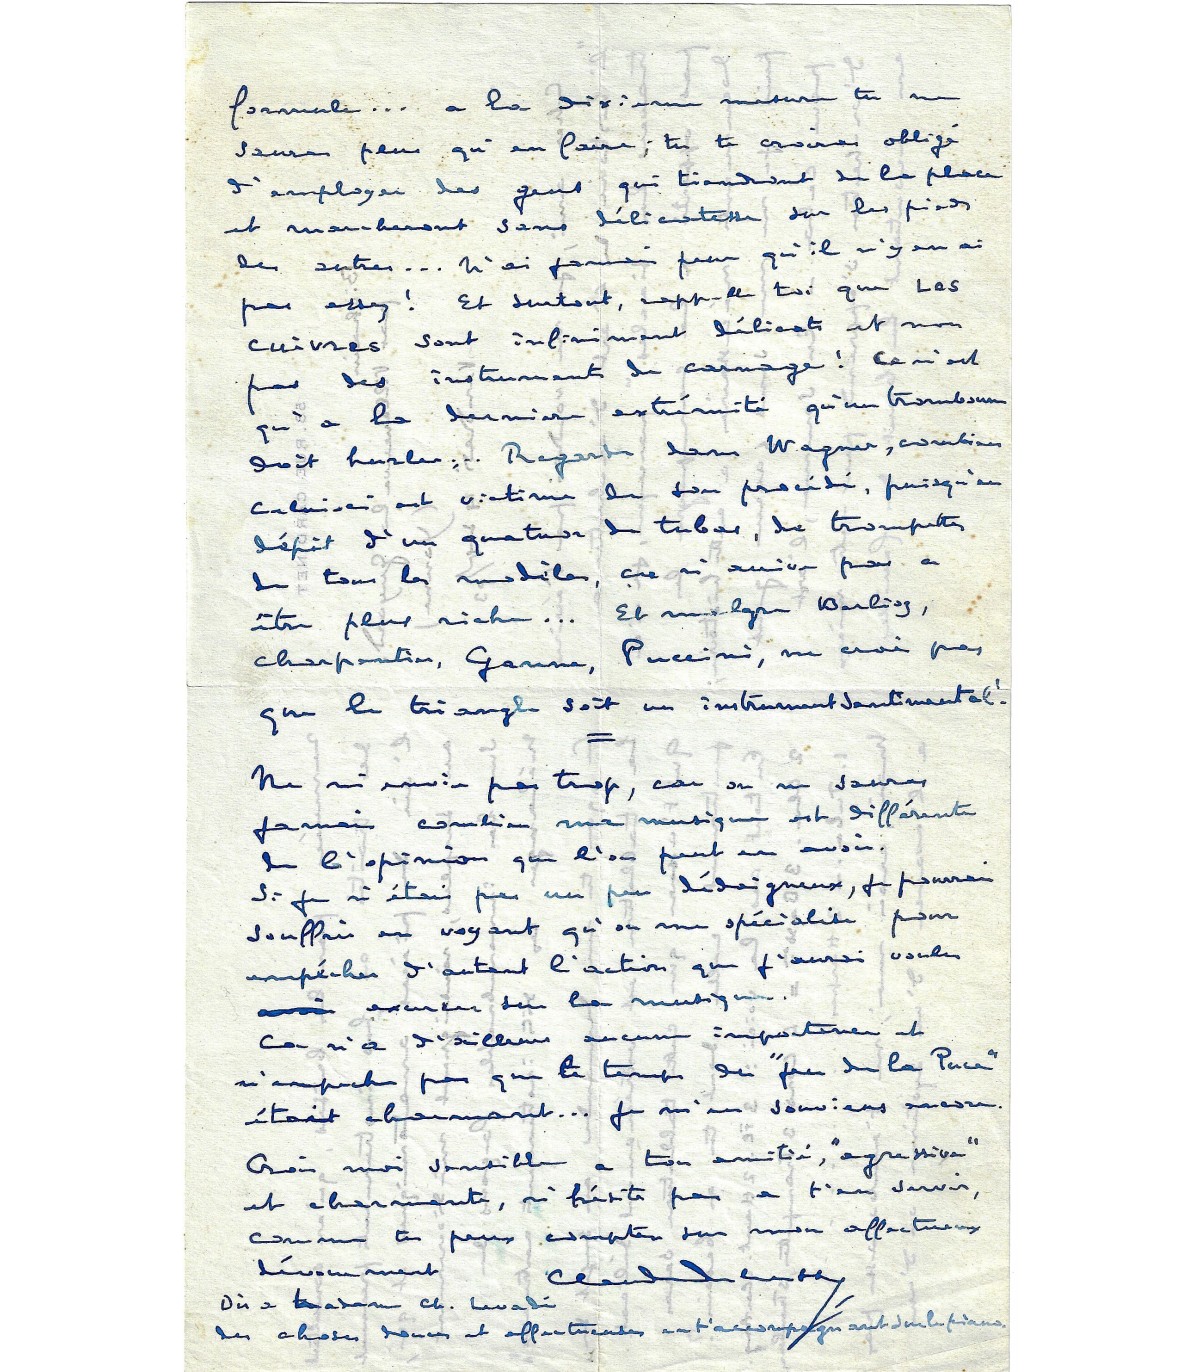 formule... a la dixième mesure tu ne
sauras plus qu'en faire; tu te croiras obligé
d'employer des gens qui tiendront de la place
et marcheront sans délicatesse sur les pieds
des autres... N'ai jamais peur qu'il n'y en ai
pas assez! Et surtout, rappelle toi que LES
CUIVRES sont infiniment délicats et non
pas des instruments de carnage! Ce n'est
qu'a la dernière extrémité qu'un trombonne
doit hurler... Regarde dans Wagner, combien
celui-ci est victime de son procédé, puisqu'en
dépit d'un quatuor de tubas, de trompettes
de tous les modèles, ça n'arrive pas a
être plus riche... Et malgré Berlioz,
Charpentier, Ganne, Puccini, ne crois pas
que le triangle soit un instrument sentimental!
=
Ne m'envie pas trop, car on ne saura
jamais combien ma musique est différente
de l'opinion que l'on peut en avoir.
Si je n'étais pas un peu dédaigneux, je pourrais
souffrir en voyant qu'on me spécialise pour
empêcher d'autant l'action que j'aurai voulu
exercer sur la musique.
Ca n'a d'ailleurs aucune importance et
n'empêche pas que le temps du "jeu de la Puce"
était charmant... Je m'en souviens encore.
Crois moi sensible a ton amitié, "agressive"
et charmante, n'hésite pas a t'en servir,
comme tu peux compter sur mon affectueux
dévouement Claude Debussy
Dis a Madame Ch. Levadé
des choses douces et affectueuses en t'accompagnant sur le piano.